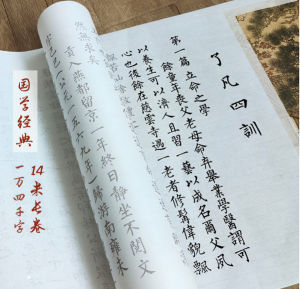 了凡四訓
第一篇立命之學
餘童年喪父老母命弃舉業學醫謂可
以養生可以濟人且習一藝以成名爾父夙
心也後餘在慈雲寺遇一老者修髯偉貌飄
貢入燕都留京一年終日靜坐不閱文
五六九年）歸游南雍未
国学经典
14米长卷
一万四千字